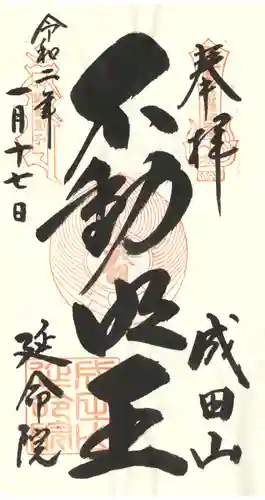 奉拝
成田山
不動明王
令和二年
一月十七日
延命院